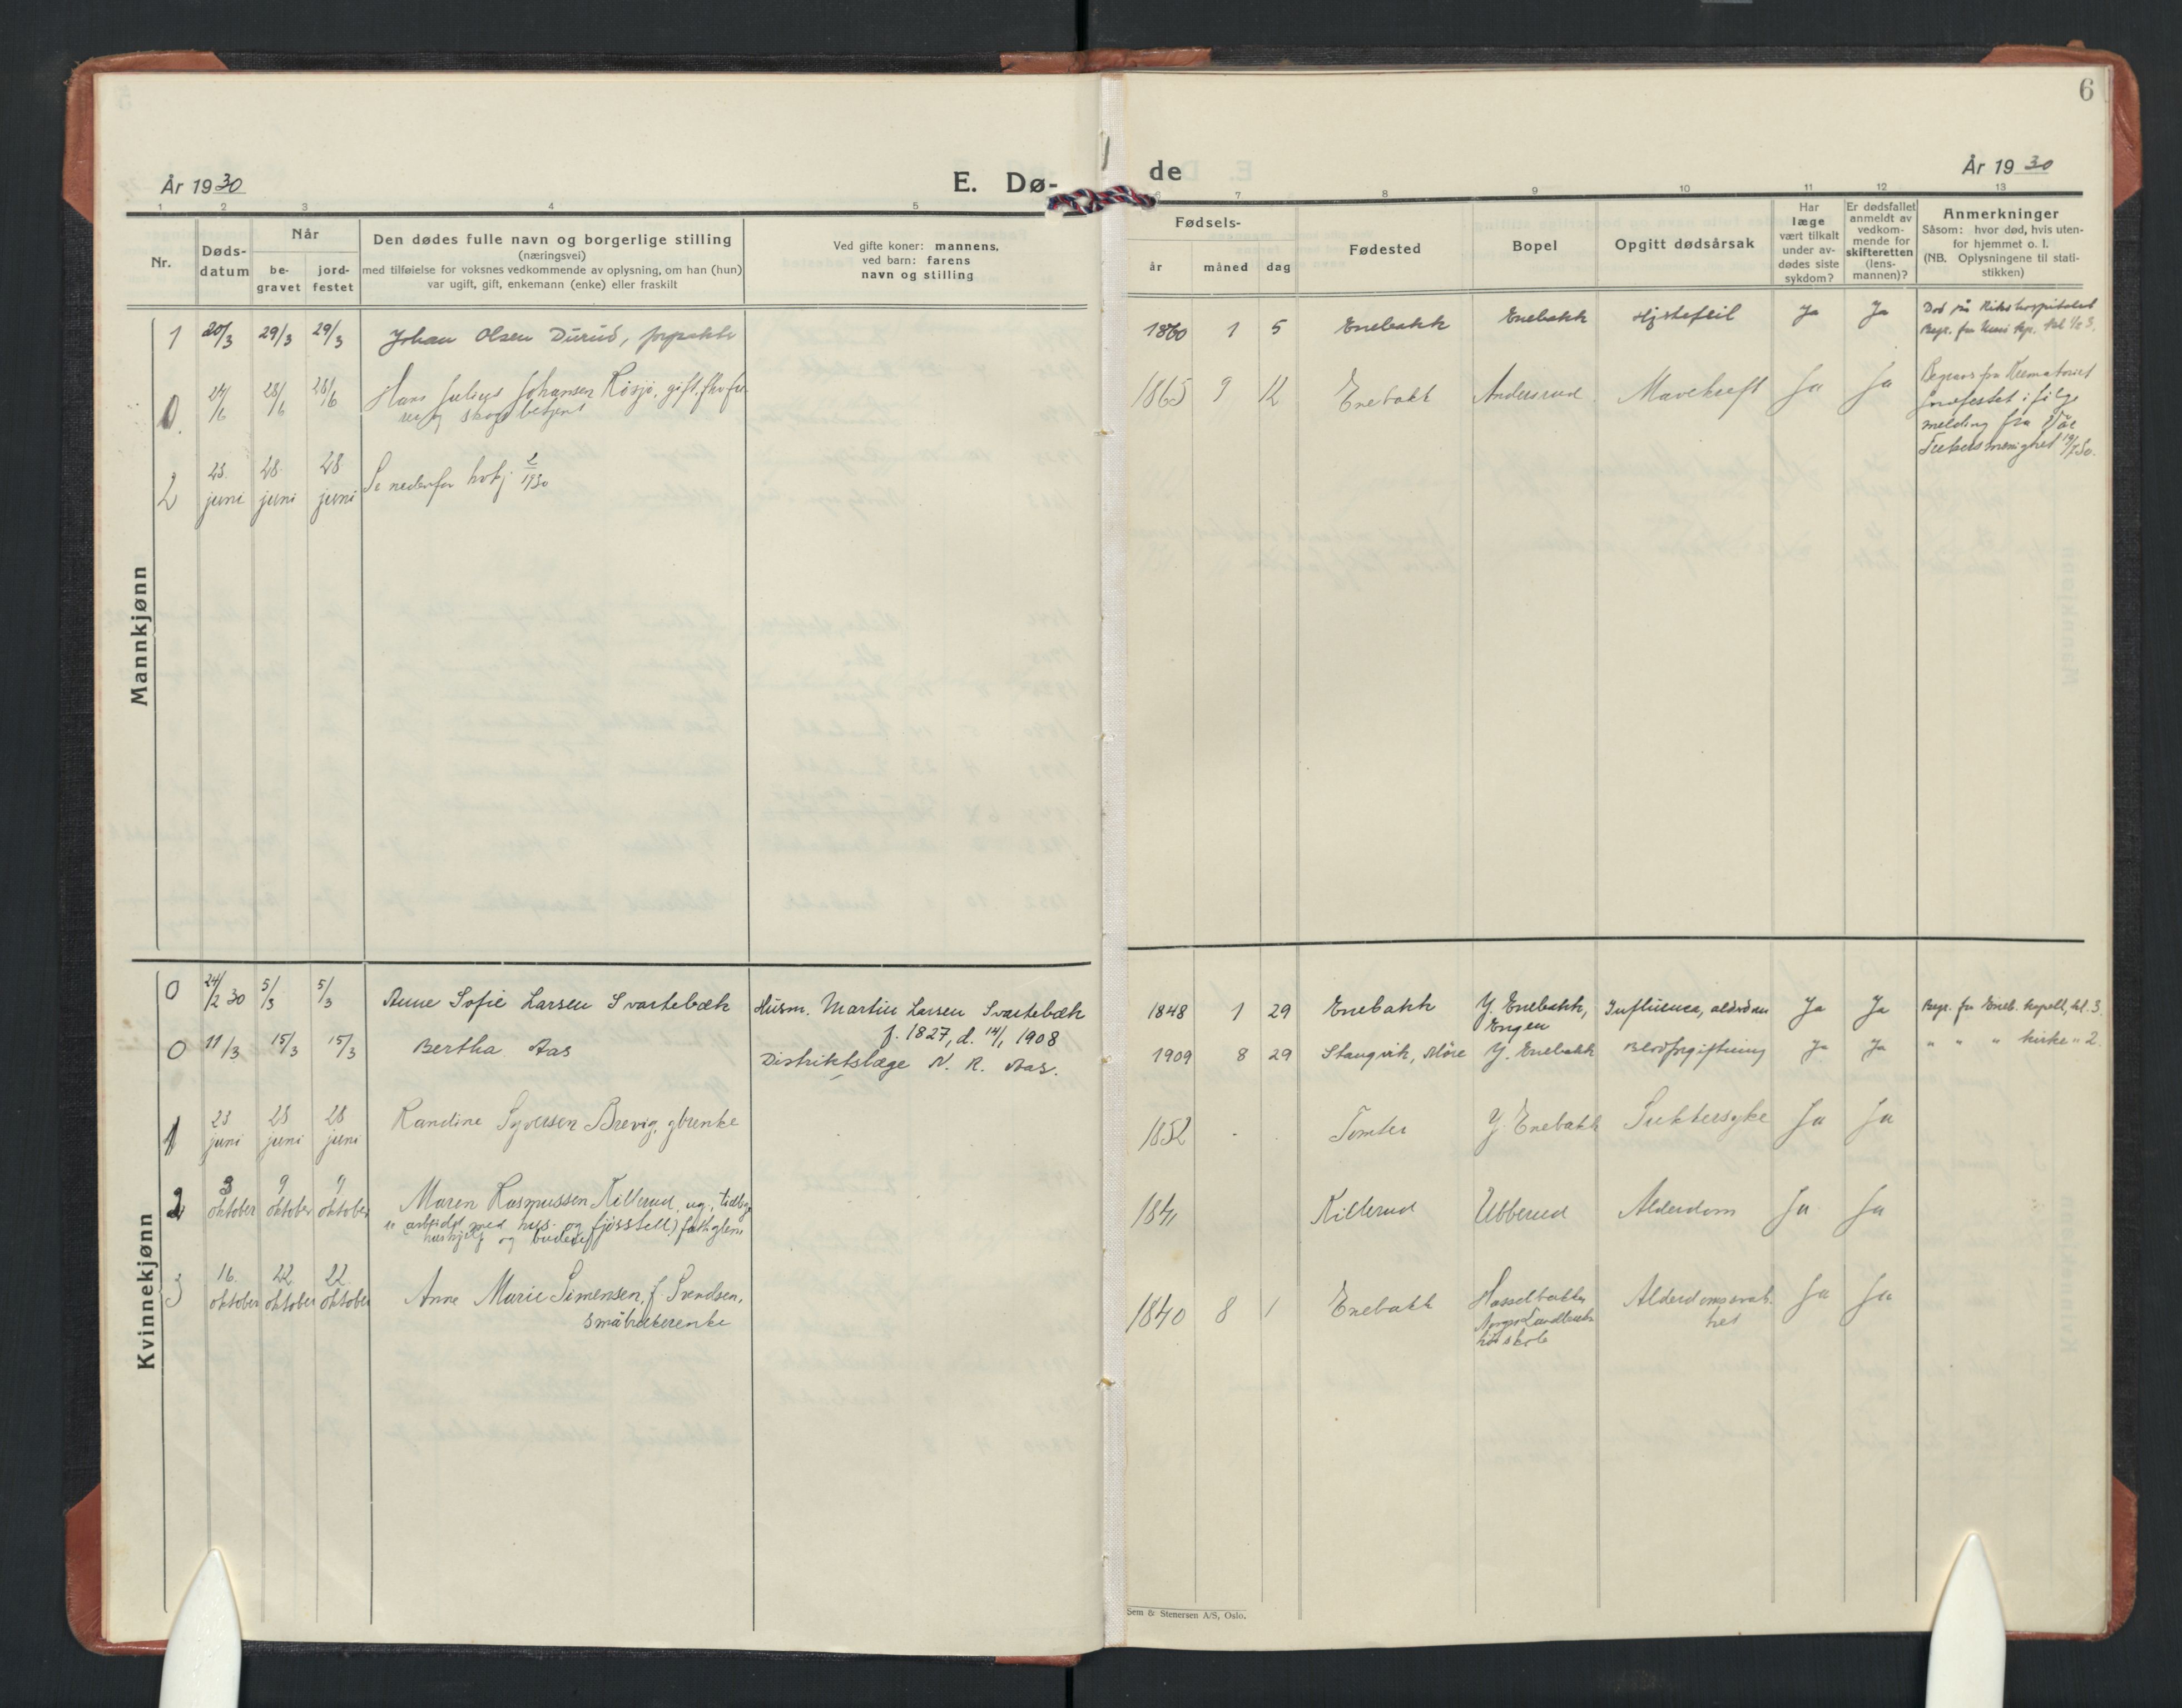 6
År 1930
E. Dø-
de
År 1930
1 2 3 4 5
6 7 8 9 10 11 12 13
Nr.
Døds-
datum
Når
be-
gravet
jord-
festet
Den dødes fulle navn og borgerlige stilling
(næringsvei)
med tilføielse for voksnes vedkommende av oplysning, om han (hun)
var ugift, gift, enkemann (enke) eller fraskilt
Ved gifte koner: mannens,
ved barn: farens
navn og stilling
Fødsels-
år måned dag
Fødested
Bopel
Opgitt dødsårsak
Har
læge
vært tilkalt
under av-
dødes siste
sykdom?
Er dødsfallet
anmeldt av
vedkom-
mende for
skifteretten
(lens-
mannen)?
Anmerkninger
Såsom: hvor død, hvis uten-
for hjemmet o. l.
(NB. Oplysningene til stati-
stikken)
Mannkjønn
1 20/3 29/3 29/3 Johan Olsen Durud, forpakter 1860 1 5 Enebakk Enebakk Hjertefeil Ja Ja Død på Rikshospitalet
Begr. fra
0 24/6 28/6 28/6 Hans Julius Johansen Rösjö, gift,
og skogsbetjent
1865 9 12 Enebakk Andersrud Mavekreft Ja Ja Begravs fra Krematoriet
Jordfestet i følge
melding fra Vår
Frelsers menighet
2 23. juni 28 juni 28 juni Se nedenfor kvkj 2/1930
Kvinnekjønn
0 24/2 30 5/3 5/3 Anne Sofie Larsen Svartebæk Husm. Martin Larsen Svartebæk
f. 1827, d. 14/1 1908
1848 1 29 Enebakk Y. Enebakk,
Engen
Influenca, alderdom Ja Ja Begr. fra Eneb. kapell, kl. 3.
0 11/3 15/3 15/3 Bertha Aas Distriktslæge N. R. Aas. 1909 8 29 Stangvik, Möre Y. Enebakk Blodforgiftning Ja Ja " " " kirke " 2.
1 23 juni 28 juni 28 juni Randine Syversen Brevig, gbrenke 1852 - . Tomter Y. Enebakk Sukkersyke Ja Ja
2 3 oktober 9 oktober 9 oktober Maren Rasmussen Killerud, ug, tidlige
re (arbeidet med hus- og fjösstell)
hushjelp og budeie
1841 Killerud Ubberud Alderdom Ja Ja
3 16. oktober 22 oktober 22 oktober Anne Marie Simensen, f. Svendsen,
småbrukerenke
1840 8 1 Enebakk Hasselbakken
Norges Landbruks
höiskole
Alderdomssvak-
het
Ja Ja
Sem & Stenersen A/S, Oslo.